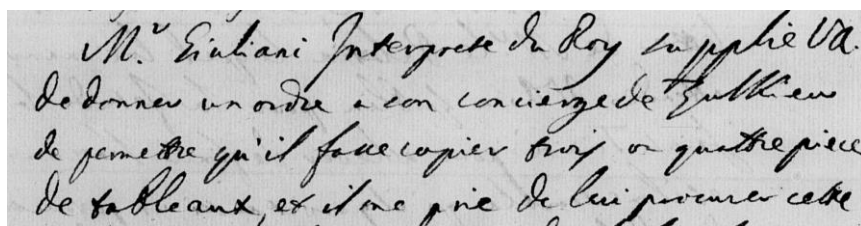 Mr. Giuliani Interprete du Roy supplie VA.
de donner un ordre a son concierge de
de permettre qu'il fasse copier trois ou quattre piece
de tableaux, et il me prie de lui procurer cette